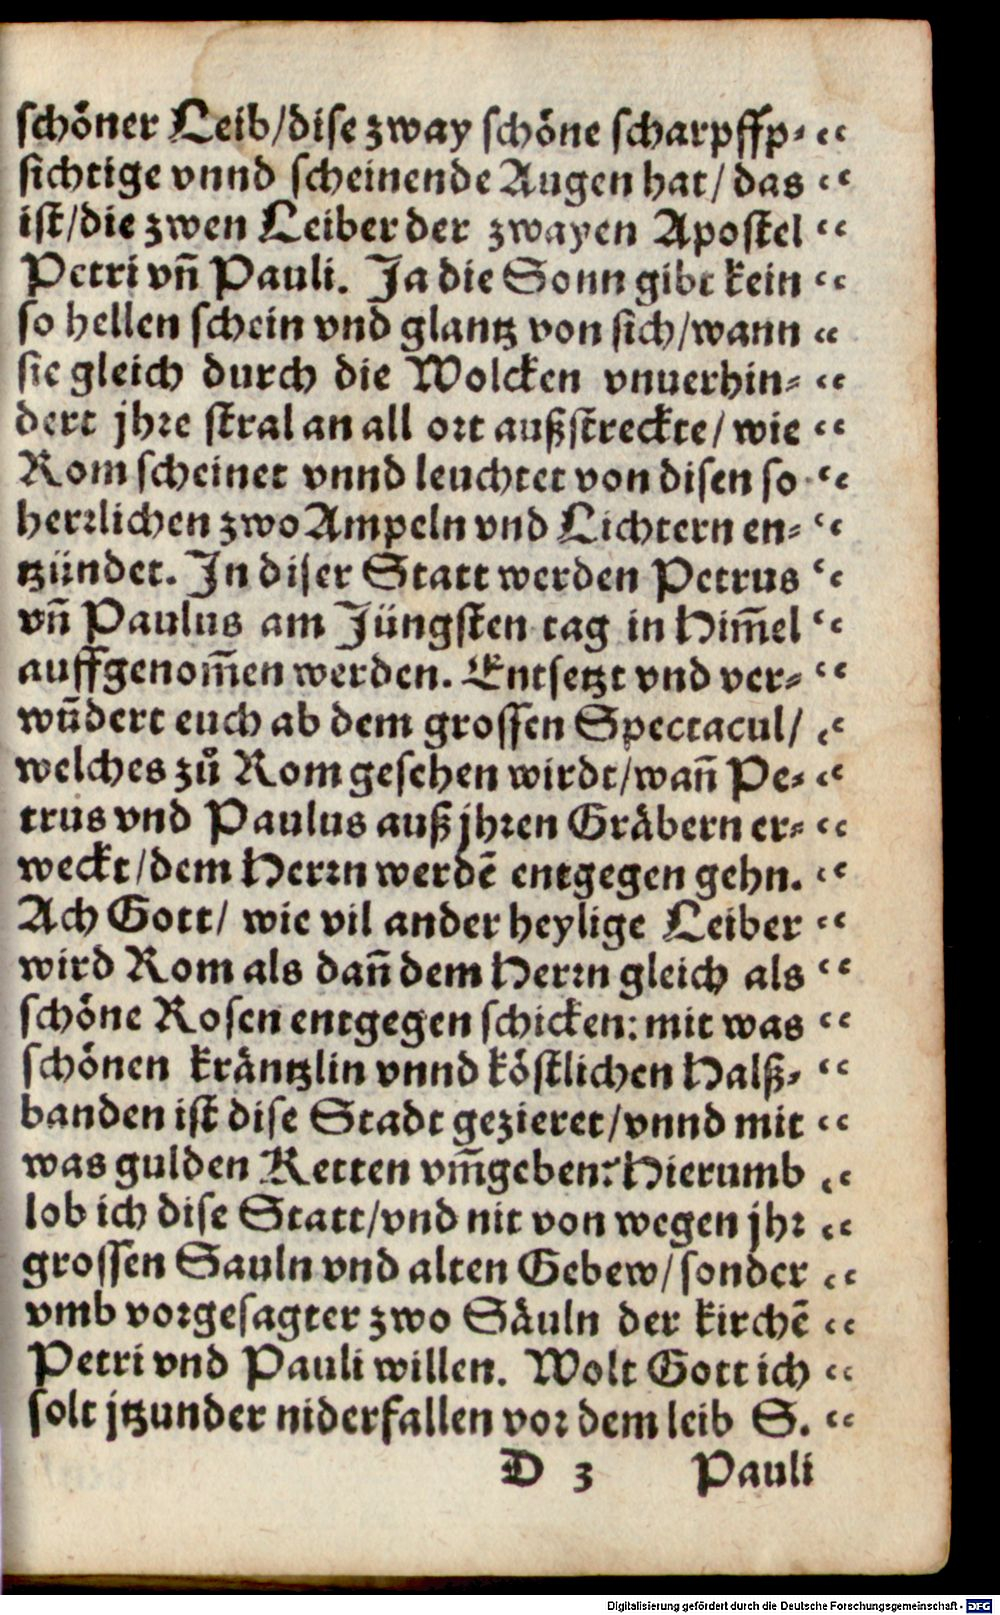 schöner Leib/dise zway schöne scharpffp⸗ “
sichtige vnnd scheinende Augen hat/ das “
ist/die zwen Leiber der zwayen Apostel “
Petri vn̄ Pauli. Ja die Sonn gibt kein “
so hellen schein vnd glantz von sich/wann “
sie gleich durch die Wolcken vnuerhin⸗ “
dert jhre stral an all ort außstreckte/ wie “
Rom scheinet vnnd leuchtet von disen so “
herrlichen zwo Ampeln vnd Lichtern en⸗ “
tzündet. In diser Statt werden Petrus “
vn̄ Paulus am Jüngsten tag in Him̄el “
auffgenom̄en werden. Entsetzt vnd ver⸗ “
wūdert euch ab dem grossen Spectacul/ “
welches zů Rom gesehen wirdt/wan̄ Pe⸗ “
trus vnd Paulus auß jhren Gräbern er⸗ “
weckt/dem Herrn werdē entgegen gehn. “
Ach Gott/ wie vil ander heylige Leiber “
wird Rom als dan̄ dem Herrn gleich als “
schöne Rosen entgegen schicken: mit was “
schönen kräntzlin vnnd köstlichen Halß⸗ “
banden ist dise Stadt gezieret/vnnd mit “
was gulden Ketten vm̄geben? Hierumb “
lob ich dise Statt/vnd nit von wegen jhr “
grossen Sauln vnd alten Gebew/sonder “
vmb vorgesagter zwo Säuln der kirchē “
Petri vnd Pauli willen. Wolt Gott ich “
solt jtzunder niderfallen vor dem leib S. “
D 3 Pauli
Digitalisierung gefördert durch die Deutsche Forschungsgemeinschaft - DFG